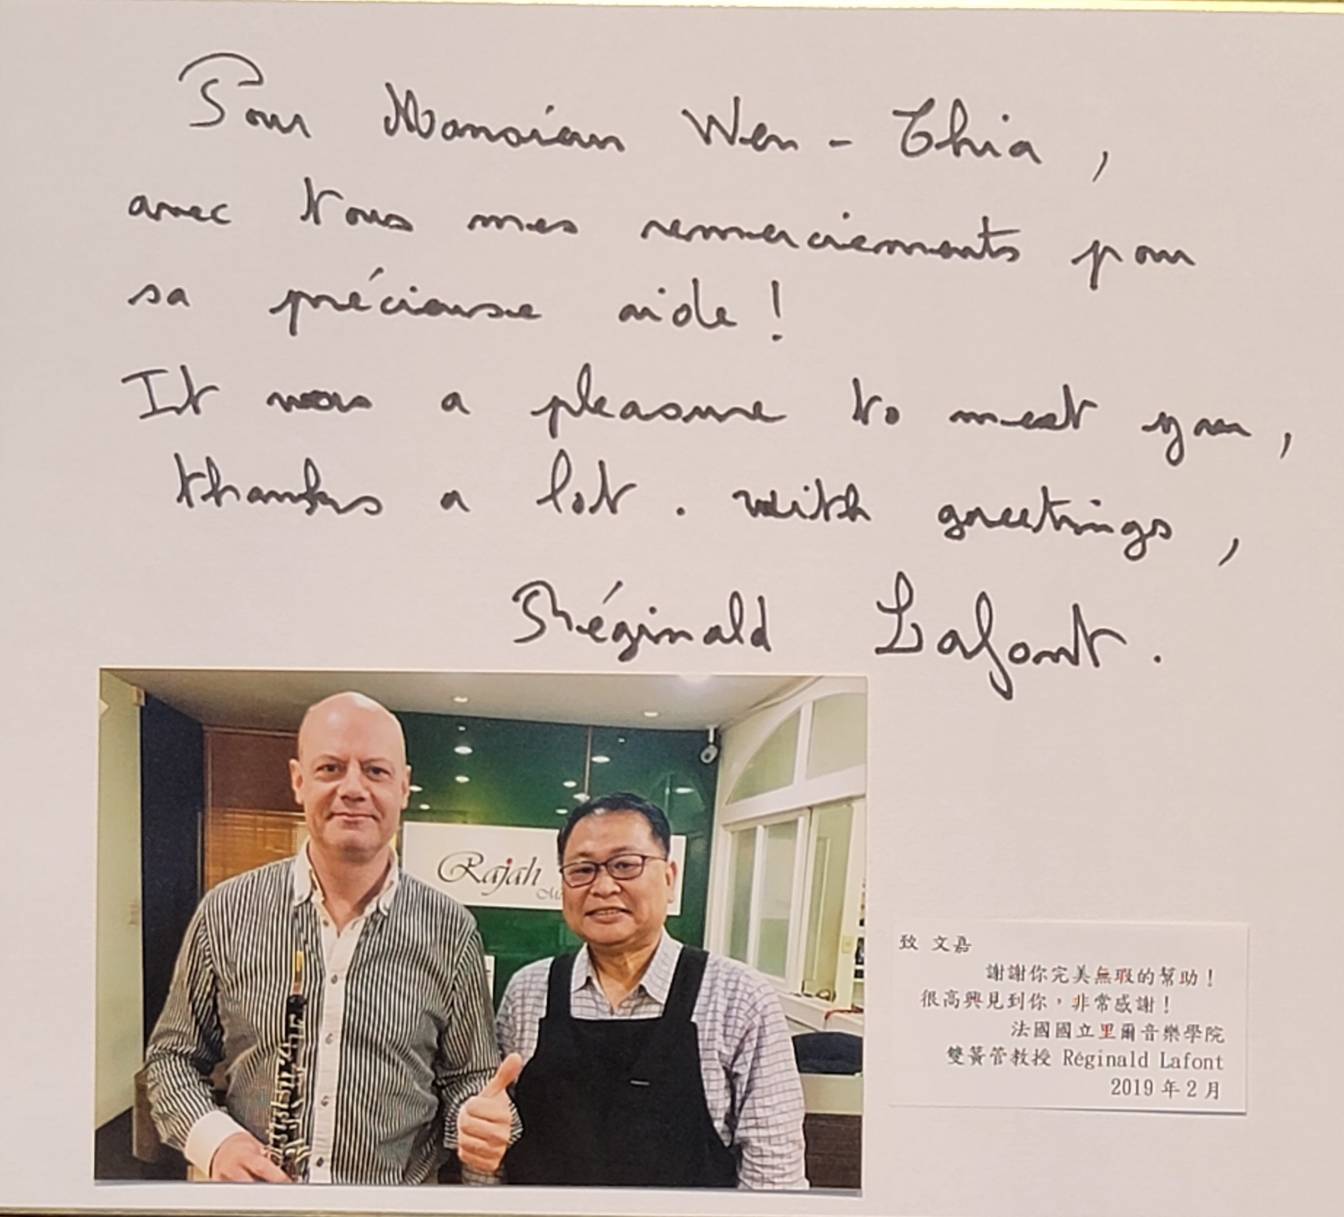 Pour Monsieur Wen-Chia,
avec tous mes remerciements pour
sa précieuse aide !
It was a pleasure to meet you,
thanks a lot. with greetings,
Réginald Lafont.
Rajah
致 文嘉
謝謝你完美無瑕的幫助！
很高興見到你，非常感謝！
法國國立里爾音樂學院
雙簧管教授 Réginald Lafont
2019 年 2 月